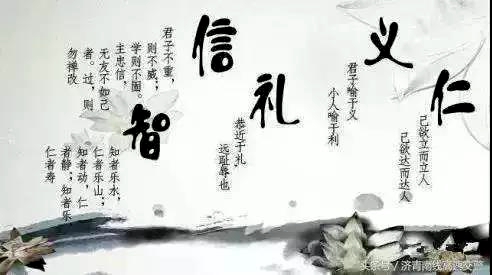 仁
己欲立而立人
己欲达而达人
义
君子喻于义
小人喻于利
礼
恭近于礼，
远耻辱也
信
君子不重，
则不威；
学则不固。
主忠信，
无友不如己
者。过，则
勿禅改
智
知者乐水，
仁者乐山；
知者动，仁
者静；知者乐
仁者寿
头条号 / 济青南线高速交警